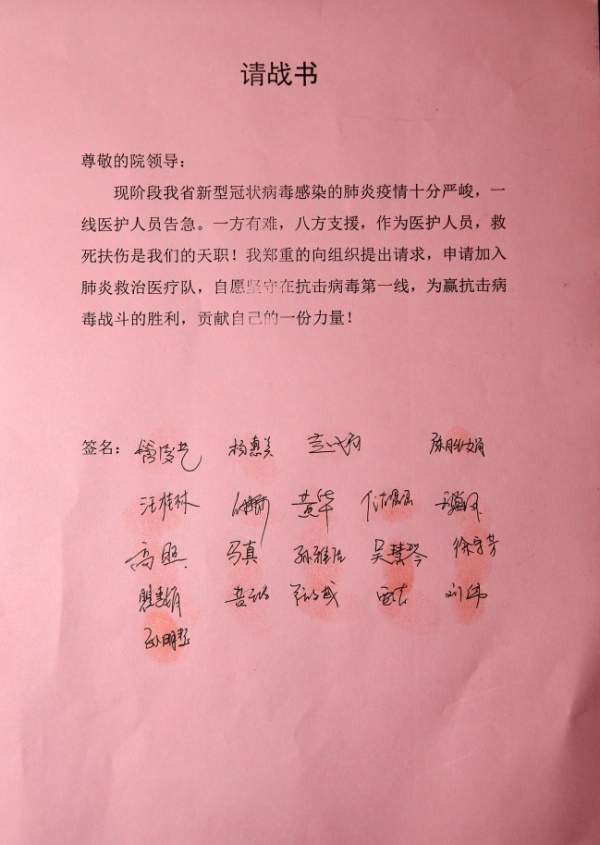 请战书
尊敬的院领导：
现阶段我省新型冠状病毒感染的肺炎疫情十分严峻，一
线医护人员告急。一方有难，八方支援，作为医护人员，救
死扶伤是我们的天职！我郑重的向组织提出请求，申请加入
肺炎救治医疗队，自愿坚守在抗击病毒第一线，为赢抗击病
毒战斗的胜利，贡献自己的一份力量！
签名： 杨惠美
汪桂林 黄华
高照 马真 孙雅洁 吴慧琴 徐守芳
刘伟
孙明